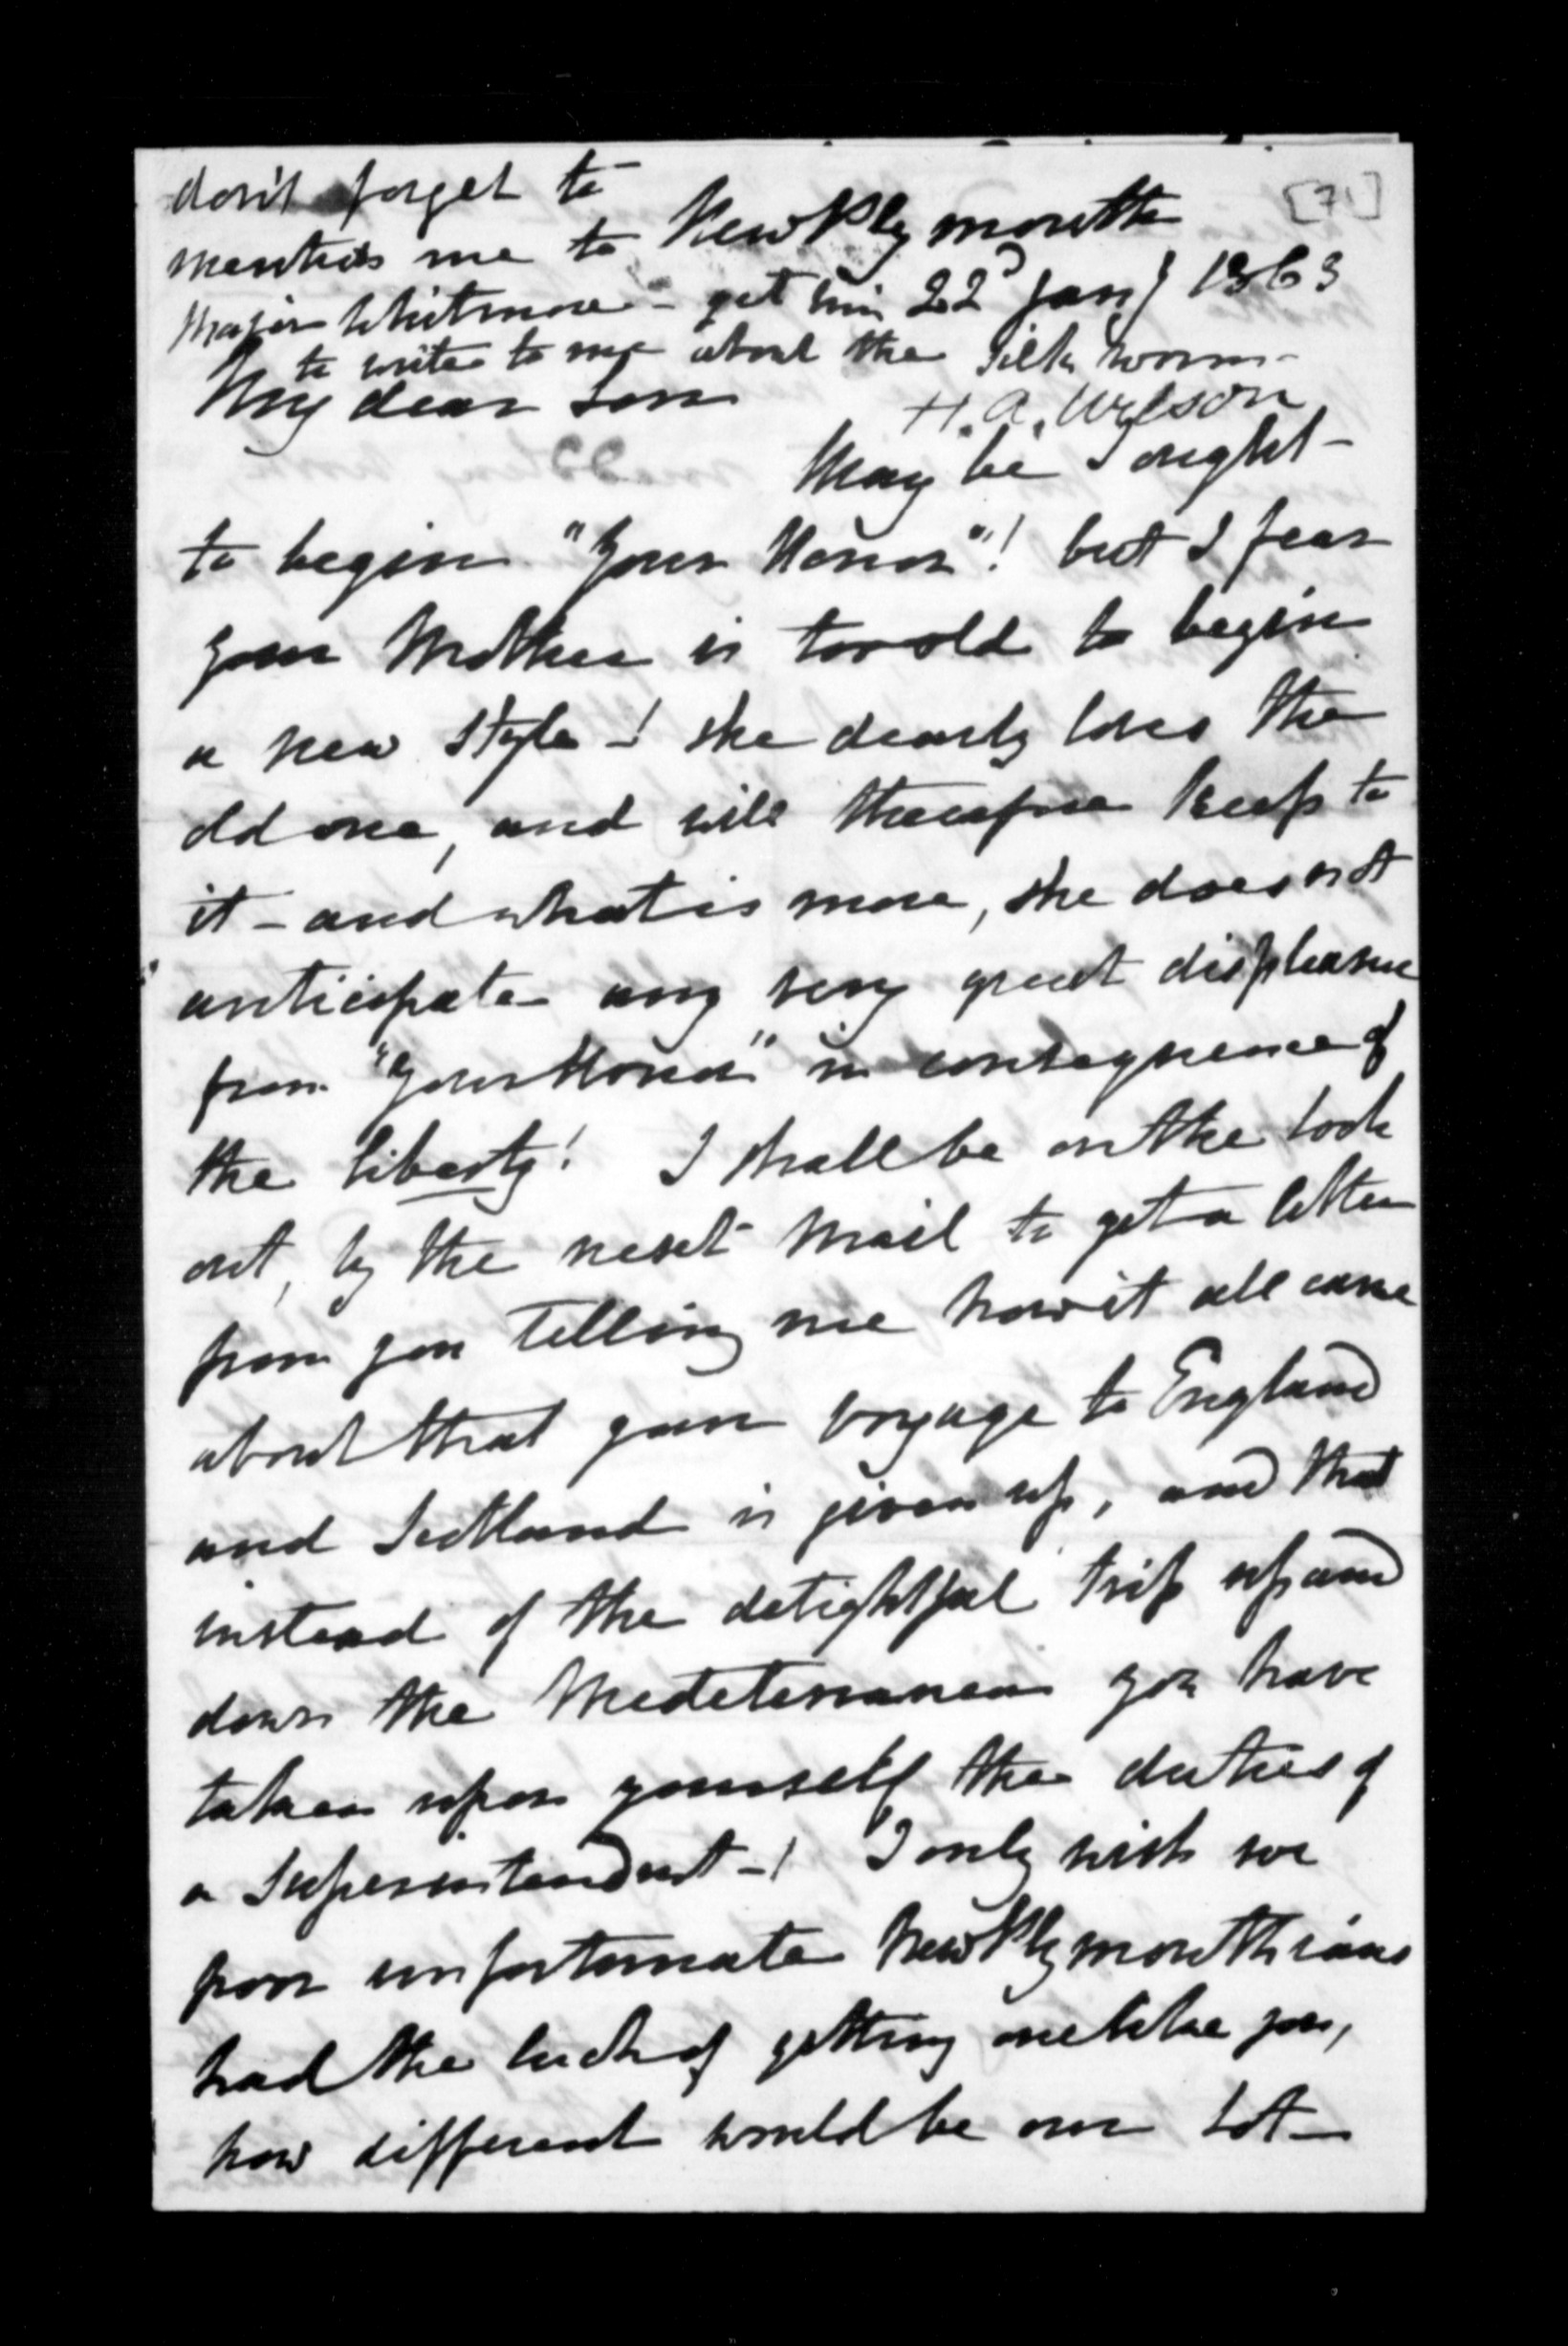 [71]
don't forget to
mention me to
Major Whitmore - get him
to write to me about the silk worm -
New Plymouth
22d Jany 1863
H. A. Wilson
My dear Son
May be I ought -
to begin "Your Honor"! but I fear
your Mother is too old to begin
a new style -! she dearly loves the
old one, and will therefore keep to
it - and what is more, she does not
anticipate any very great displeasure
from "Your Honor" in consequence of
the liberty! I shall be on the look
out, by the next mail to get a letter
from you telling me how it all came
about that your voyage to England
and Scotland is given up, and that
instead of the delightful trip up and
down the Mediteteranean you have
taken upon yourself the duties of
a Superintendent -! I only wish we
poor unfortunate New Plymouthians
had the luck of getting one like you,
how different would be our lot -